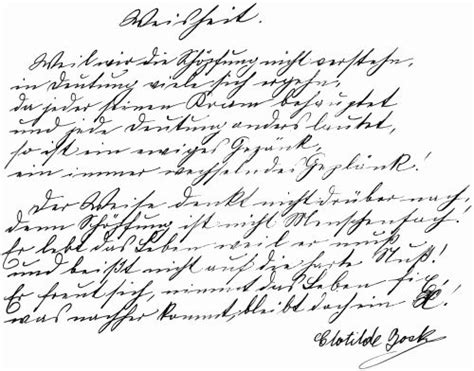 Weisheit.
Weil wir die Schöpfung nicht verstehn,
in Deutung viele sich ergehn,
da jeder seinen Kram behauptet
und jede Deutung anders lautet,
so ist ein ewiges Gezank,
ein immer wechselndes Geplänk!
Der Weise denkt nicht drüber nach,
denn Schöpfung ist nicht Menschenfach.
Er lebt das Leben weil er muß,
und beißt nicht auf die harte Nuß!
Er freut sich, nimmt das Leben fix,
was nachher kommt, bleibt doch ein X!
Clotilde